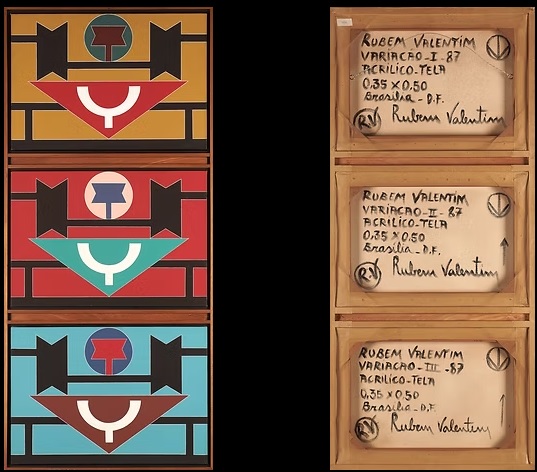 RUBEM VALENTIM
VARIAÇÃO-I-87
ACRILICO-TELA
0,35 X 0,50
Brasilia-D.F.
RV Rubem Valentim
RUBEM VALENTIM
VARIAÇÃO-II-87
ACRILICO-TELA
0,35 X 0,50
Brasilia-D.F.
R.V Rubem Valentim
RUBEM VALENTIM
VARIAÇÃO-III-87
ACRILICO-TELA
0,35 X 0,50
Brasilia-D.F
RV Rubem Valentim